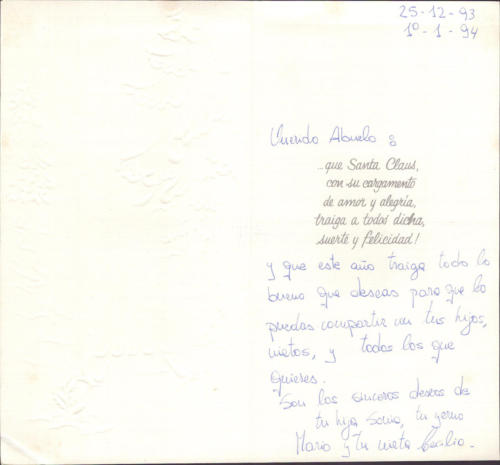 25-12-93
1º-1-94
Querido Abuelo :
...que Santa Claus,
con su cargamento
de amor y alegría,
traiga a todos dicha,
suerte y felicidad!
y que este año traiga todo lo
bueno que deseas para que lo
puedas compartir con tus hijos,
nietos, y todos los que
quieres.
Son los sinceros deseos de
tu hija Sonia, tu yerno
Mario y tu nieta Cecilia.